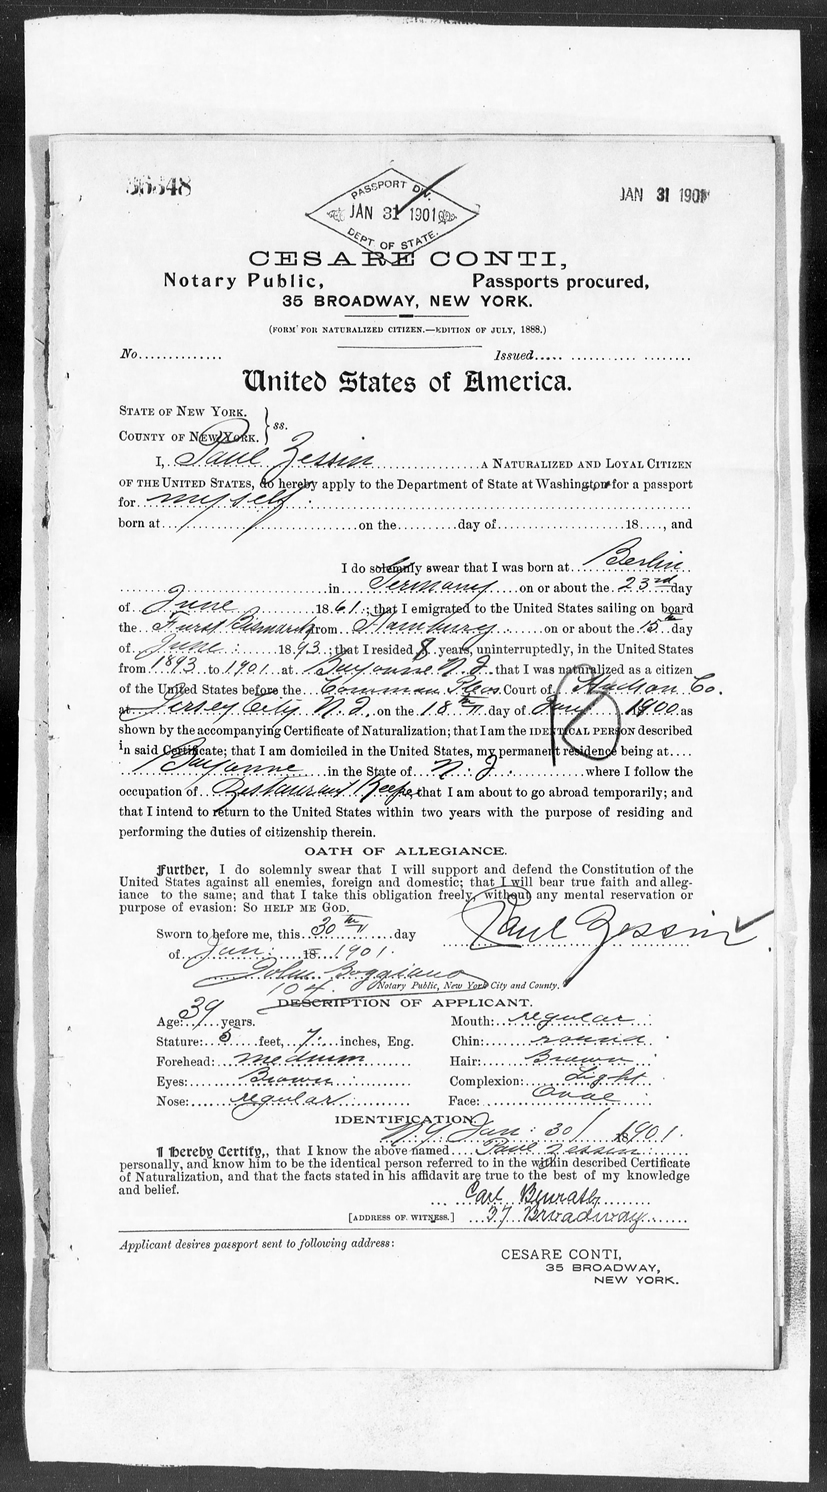 36348
JAN 31 1901
PASSPORT DIV.
JAN 31 1901
DEPT. OF STATE.
CESARE CONTI,
Notary Public, Passports procured,
35 BROADWAY, NEW YORK.
(FORM FOR NATURALIZED CITIZEN.—EDITION OF JULY, 1888.)
No.............. Issued..... ............ ........
United States of America.
STATE OF NEW YORK.
COUNTY OF NEW YORK. } ss.
I, Paul Zessin A NATURALIZED AND LOYAL CITIZEN
OF THE UNITED STATES, do hereby apply to the Department of State at Washington for a passport
for myself
born at..............................on the..........day of........................18...., and
I do solemnly swear that I was born at Berlin
in Germany on or about the 23rd day
of June 1861; that I emigrated to the United States sailing on board
the Furst Bismarck from Hamburg on or about the 15th day
of June 1893; that I resided 8 years, uninterruptedly, in the United States
from 1893 to 1901 at Bayonne N.J. that I was naturalized as a citizen
of the United States before the Common Pleas Court of Hudson Co.
at Jersey City N.J. on the 18th day of Jany 1900 as
shown by the accompanying Certificate of Naturalization; that I am the IDENTICAL PERSON described
in said Certificate; that I am domiciled in the United States, my permanent residence being at....
Bayonne in the State of N.J. where I follow the
occupation of Restaurant Keeper that I am about to go abroad temporarily; and
that I intend to return to the United States within two years with the purpose of residing and
performing the duties of citizenship therein.
OATH OF ALLEGIANCE.
Further, I do solemnly swear that I will support and defend the Constitution of the
United States against all enemies, foreign and domestic; that I will bear true faith and alleg-
iance to the same; and that I take this obligation freely, without any mental reservation or
purpose of evasion: SO HELP ME GOD.
Sworn to before me, this 30th day
Paul Zessin
of Jan: 18 1901.
John Boggiano
104. Notary Public, New York City and County.
DESCRIPTION OF APPLICANT.
Age: 39 years. Mouth: regular
Stature: 5 feet, 7 inches, Eng. Chin: round
Forehead: medium Hair: Brown
Eyes: Brown Complexion: Light
Nose: regular Face: Oval
IDENTIFICATION.
N.Y. Jan: 30/ 18 1901.
I Hereby Certify,, that I know the above named Paul Zessin
personally, and know him to be the identical person referred to in the within described Certificate
of Naturalization, and that the facts stated in his affidavit are true to the best of my knowledge
and belief.
Carl Benrath
[ADDRESS OF WITNESS.] 37 Broadway
Applicant desires passport sent to following address:
CESARE CONTI,
35 BROADWAY,
NEW YORK.